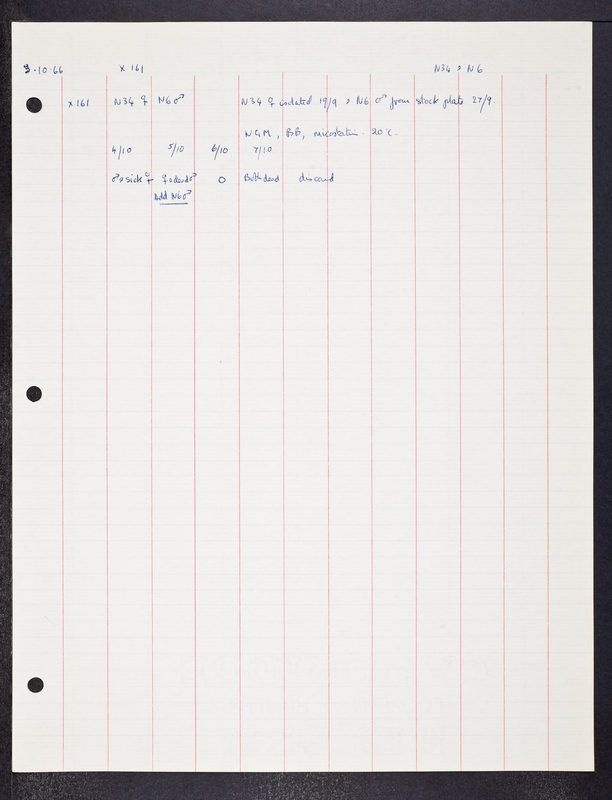 3.10.66 x 161 N34 , N6
x161 N34 ♀ N6 ♂ N34 ♀ isolated 19/9 , N6 ♂ from stock plate 27/9.
NGM, BB, micostatin. 20°c.
4/10 5/10 6/10 7/10
♂ , sick ♀ ♀ , dead ♂ 0 Both dead discard
Add N6 ♂